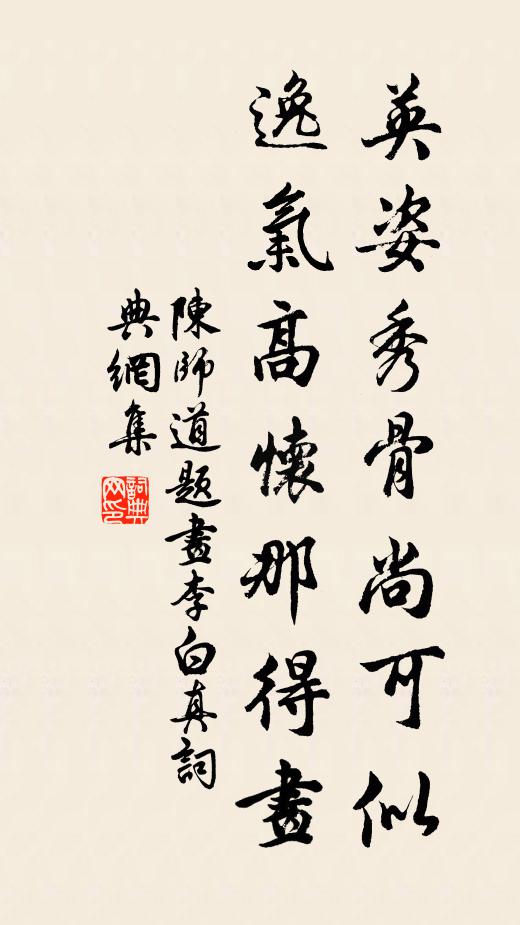 英姿秀骨尚可似
逸氣高懷那得畫
陳師道題畫李白真詞
典網集
詞典网印